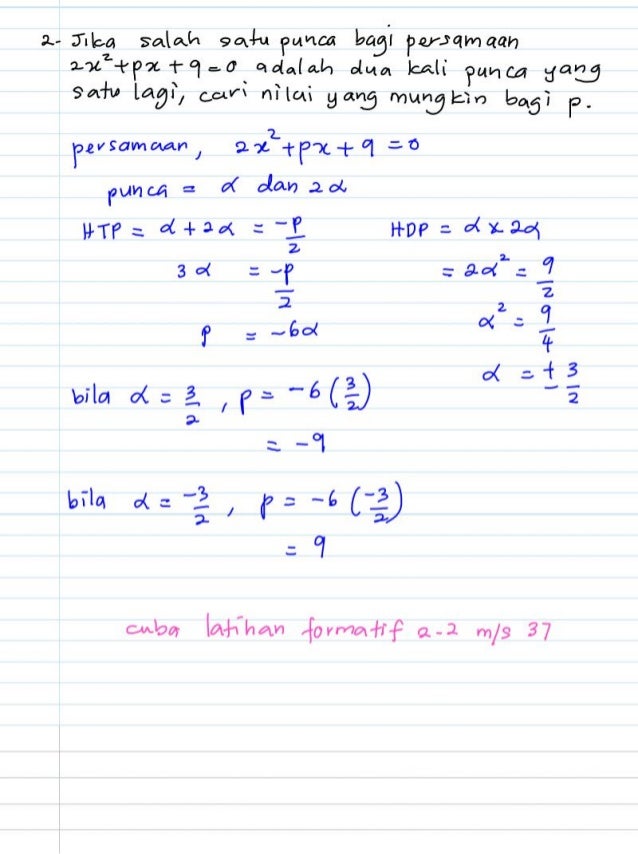 2- Jika salah satu punca bagi persamaan
2x²+px+9=0 adalah dua kali punca yang
satu lagi, cari nilai yang mungkin bagi p.
persamaan, 2x²+px+9=0
punca = α dan 2α
HTP = α+2α = -p/2
HDP = α×2α
3α = -p/2
= 2α² = 9/2
p = -6α
α² = 9/4
α = ±3/2
bila α = 3/2, p = -6(3/2)
= -9
bila α = -3/2, p = -6(-3/2)
= 9
cuba latihan formatif 2-2 m/s 37